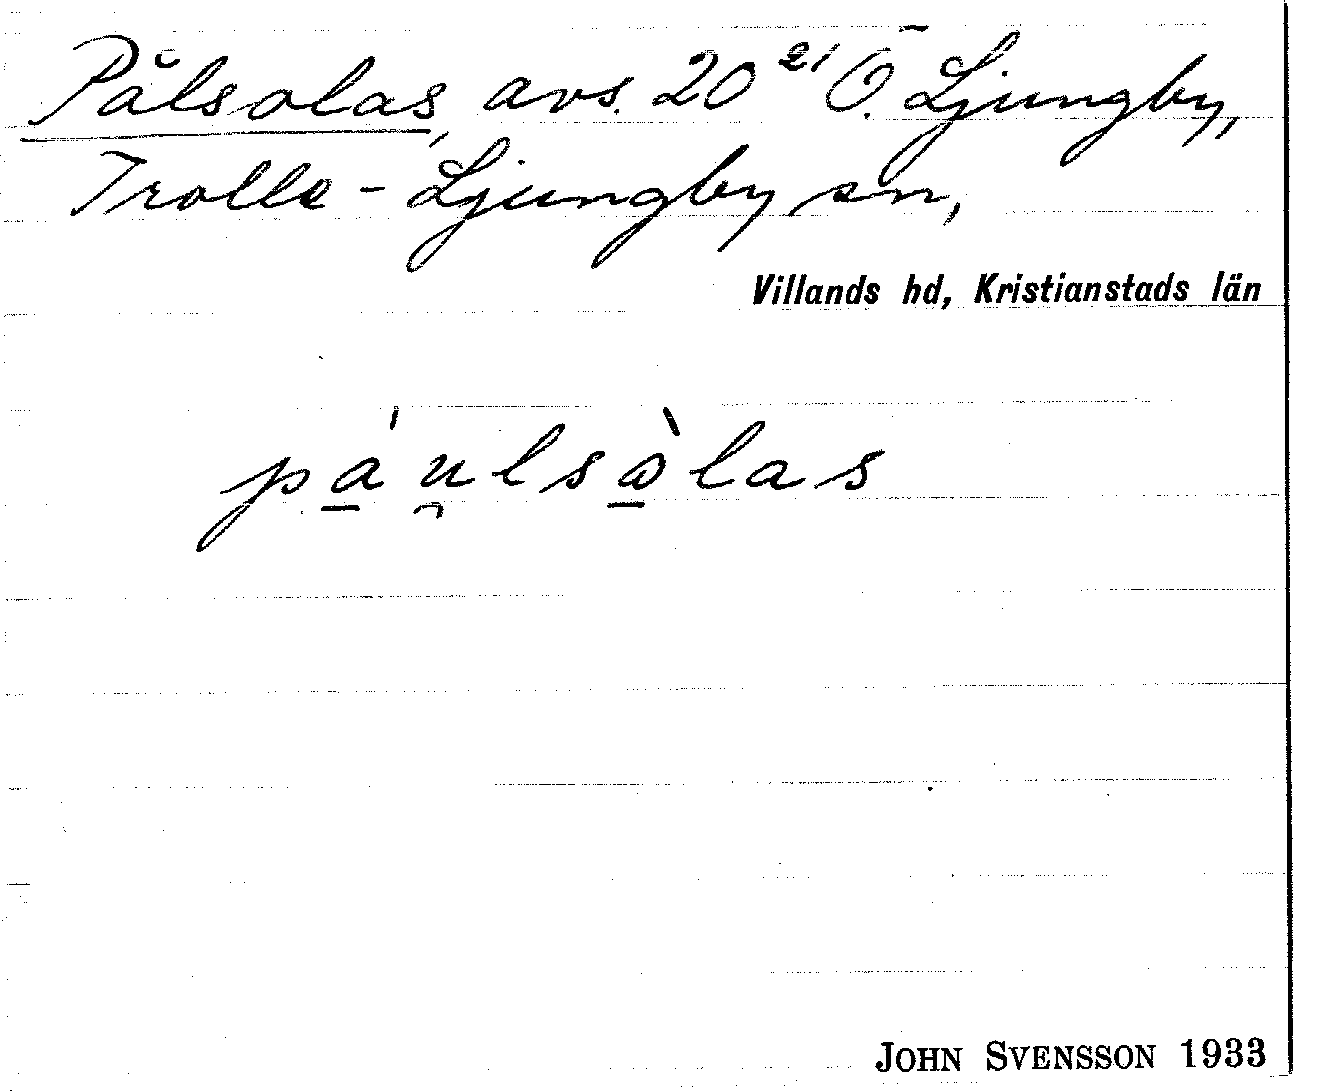 Pålsolas, avs. 20²¹ Ö. Ljungby,
Trolle-Ljungby sn,
Villands hd, Kristianstads län
pa̲̍u̯lsɷ̲̀las
JOHN SVENSSON 1933